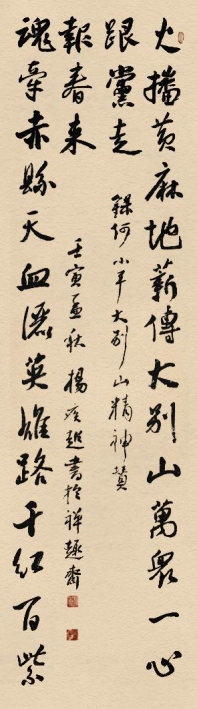 火播黄麻地薪傳大别山萬眾一心
跟黨走
録何小平大别山精神贊
魂牽赤縣天血灑英雄路千紅百紫
報春来
壬寅孟秋楊超書於禪趣齋